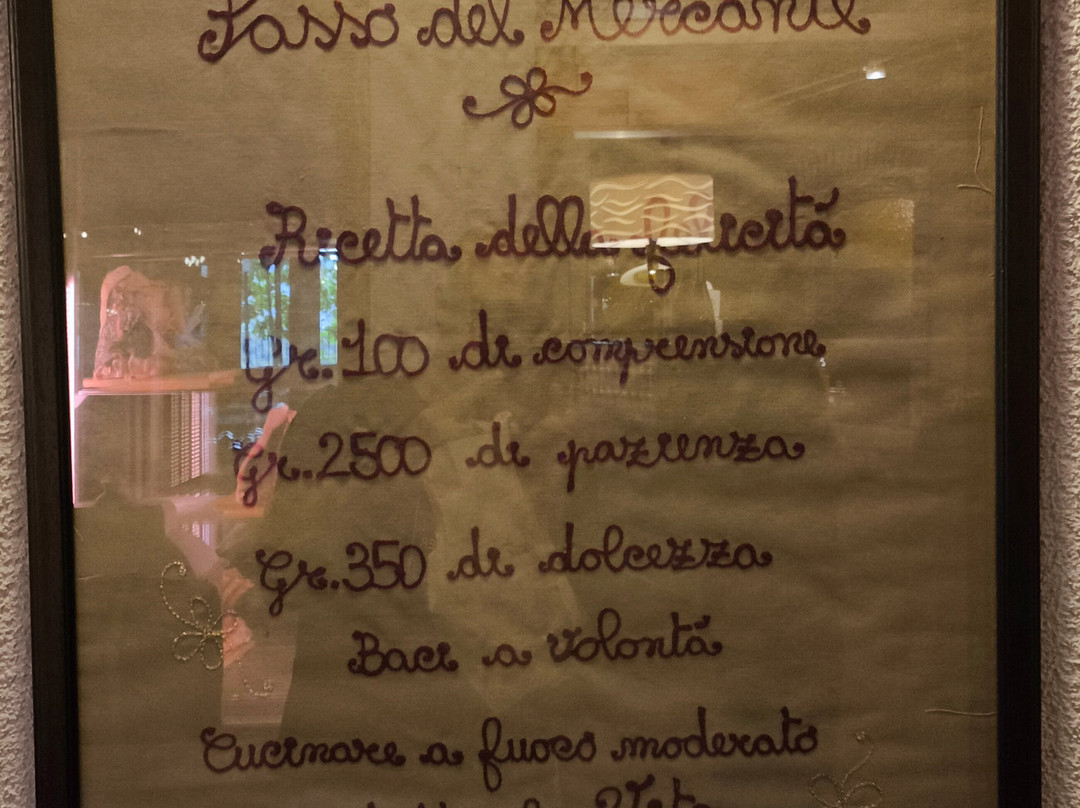 Passo del Mercante
Ricetta della felicità
Gr.100 di comprensione
Gr.2500 di pazienza
Gr.350 di dolcezza
Baci a volontà
Cucinare a fuoco moderato